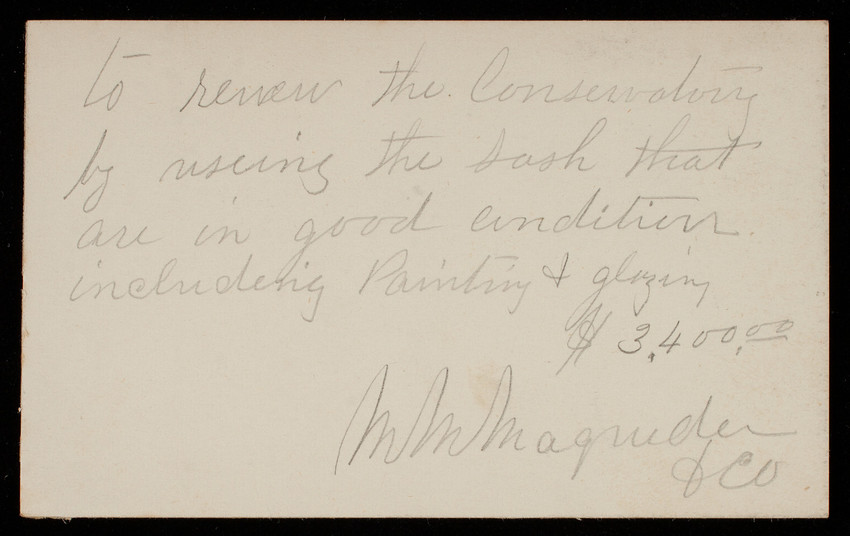 to renew the Conservatory
by useing the sash that
are in good condition.
includeing Painting & glazing
$ 3,400,00
W W Magruder
& Co